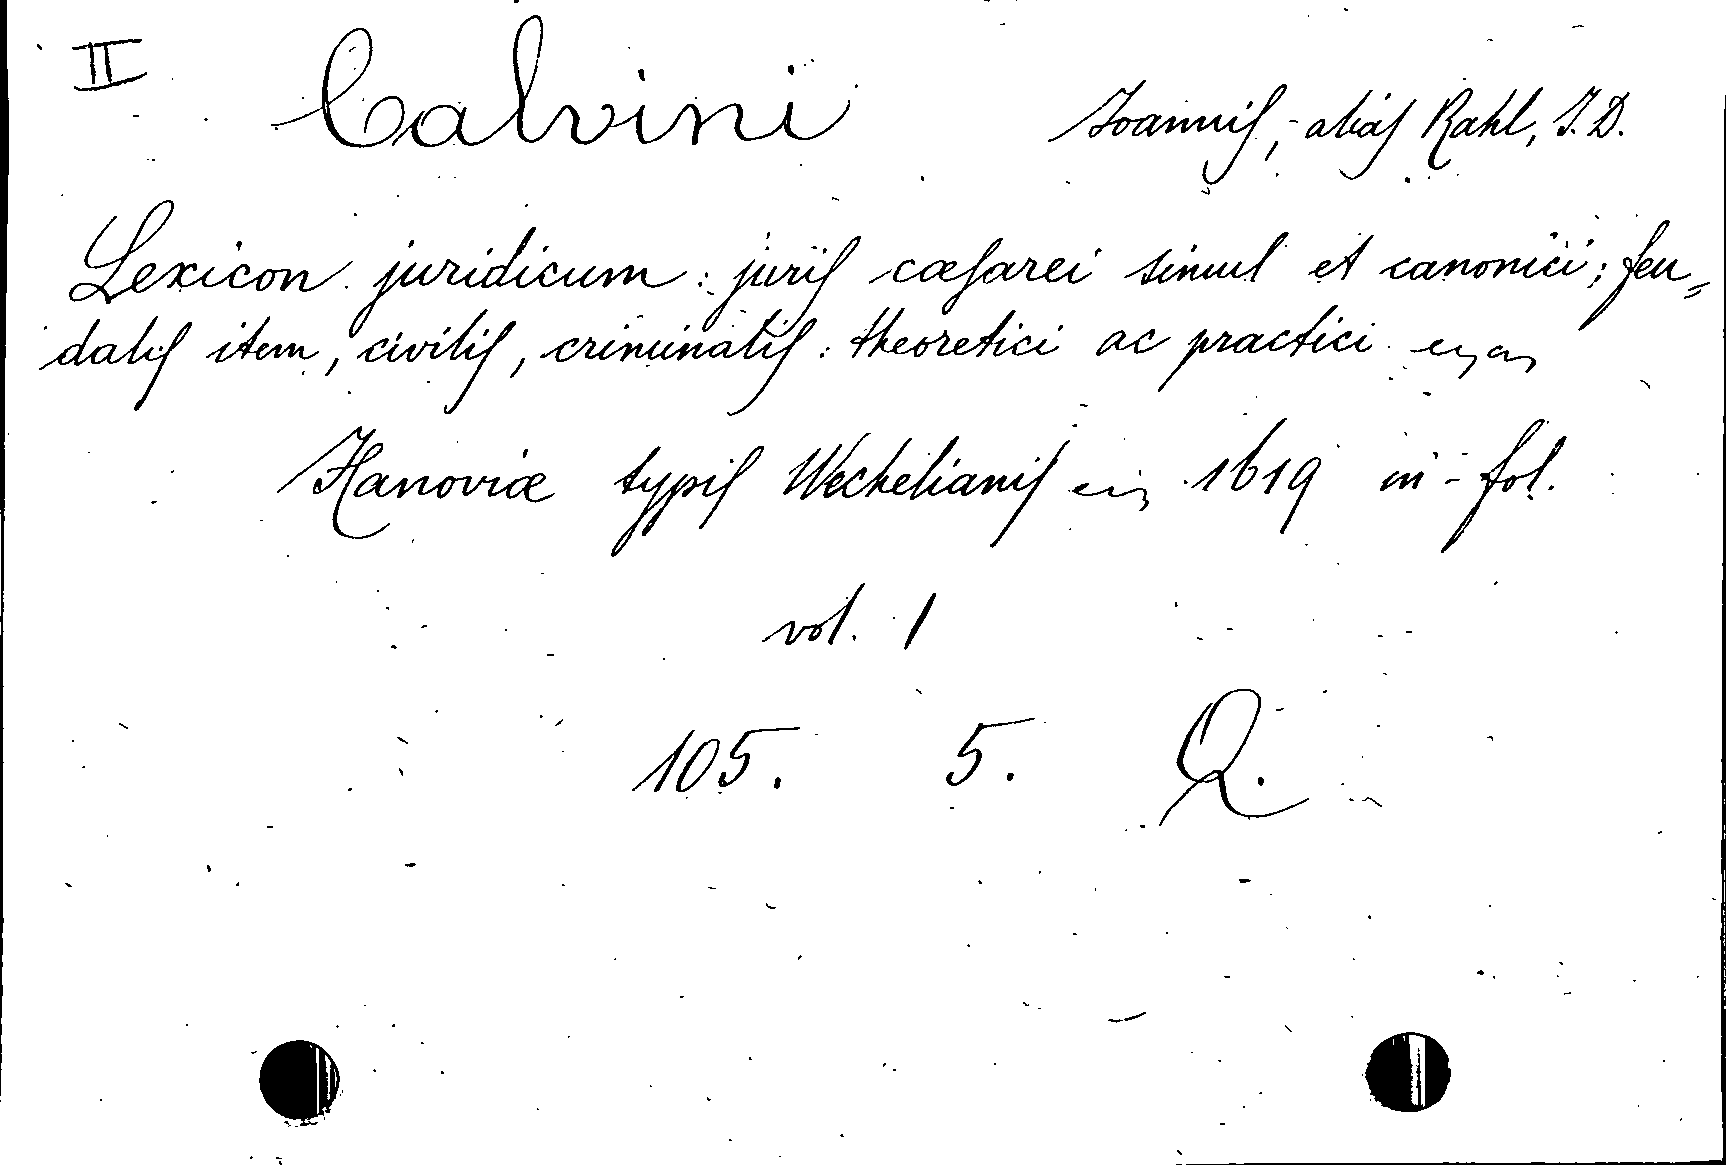 II Calvini Joannis, alias Kahl, J. D.
Lexicon juridicum: juris cæsarei simul et canonici; feu-
dalis item, civilis, criminalis: theoretici ac practici
Hanoviæ typis Wechelianis 1619 in-fol.
vol. 1
105. 5. Q.